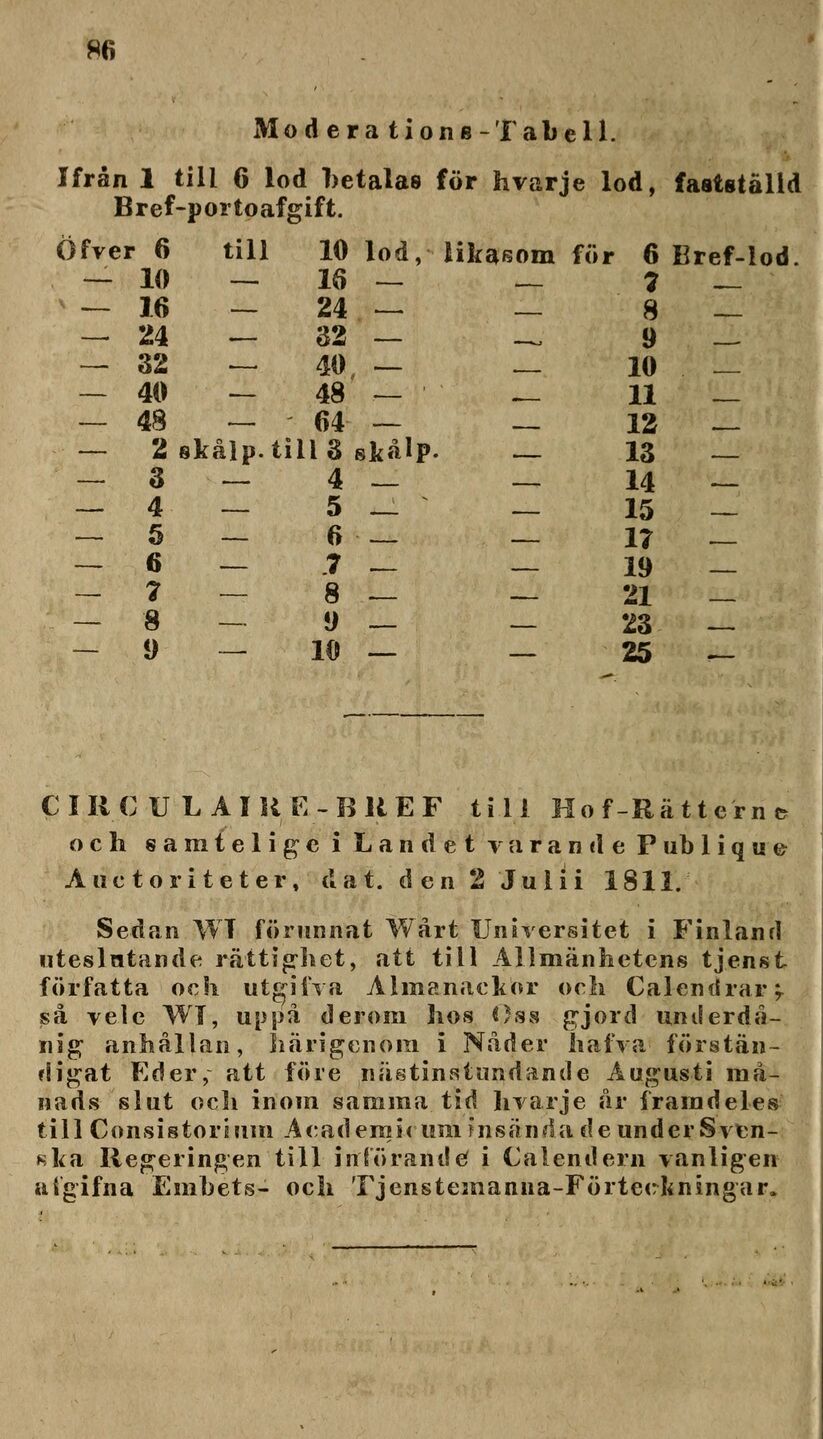 86
Moderations-Tabell.
Ifrån 1 till 6 lod betalas för hvarje lod, fastställd
Bref-portoafgift.
Öfver 6 till 10 lod, likasom för 6 Bref-lod.
— 10 — 16 — — 7 —
— 16 — 24 — — 8 —
— 24 — 32 — — 9 —
— 32 — 40 — — 10 —
— 40 — 48 — — 11 —
— 48 — 64 — — 12 —
— 2 skålp. till 3 skålp. — 13 —
— 3 — 4 — — 14 —
— 4 — 5 — — 15 —
— 5 — 6 — — 17 —
— 6 — 7 — — 19 —
— 7 — 8 — — 21 —
— 8 — 9 — — 23 —
— 9 — 10 — — 25 —
CIRCULAIRE-BREF till Hof-Rätterne
och samtelige i Landet varande Publique
Auctoriteter, dat. den 2 Julii 1811.
Sedan WI förunnat Wårt Universitet i Finland
uteslutande rättighet, att till Allmänhetens tjenst
författa och utgifva Almanackor och Calendrar;
så vele WI, uppå derom hos Oss gjord underdå-
nig anhållan, härigenom i Nåder hafva förstän-
digat Eder, att före nästinstundande Augusti må-
nads slut och inom samma tid hvarje år framdeles
till Consistorium Academicum insända de under Sven-
ska Regeringen till införande i Calendern vanligen
afgifna Embets- och Tjenstemanna-Förteckningar.